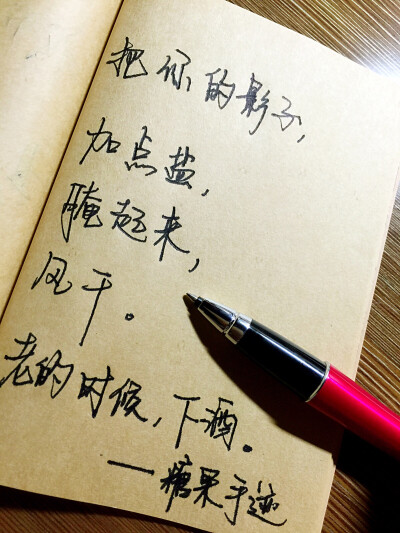 把你的影子，
加点盐，
腌起来，
风干。
老的时候，下酒。
一糖果手迹